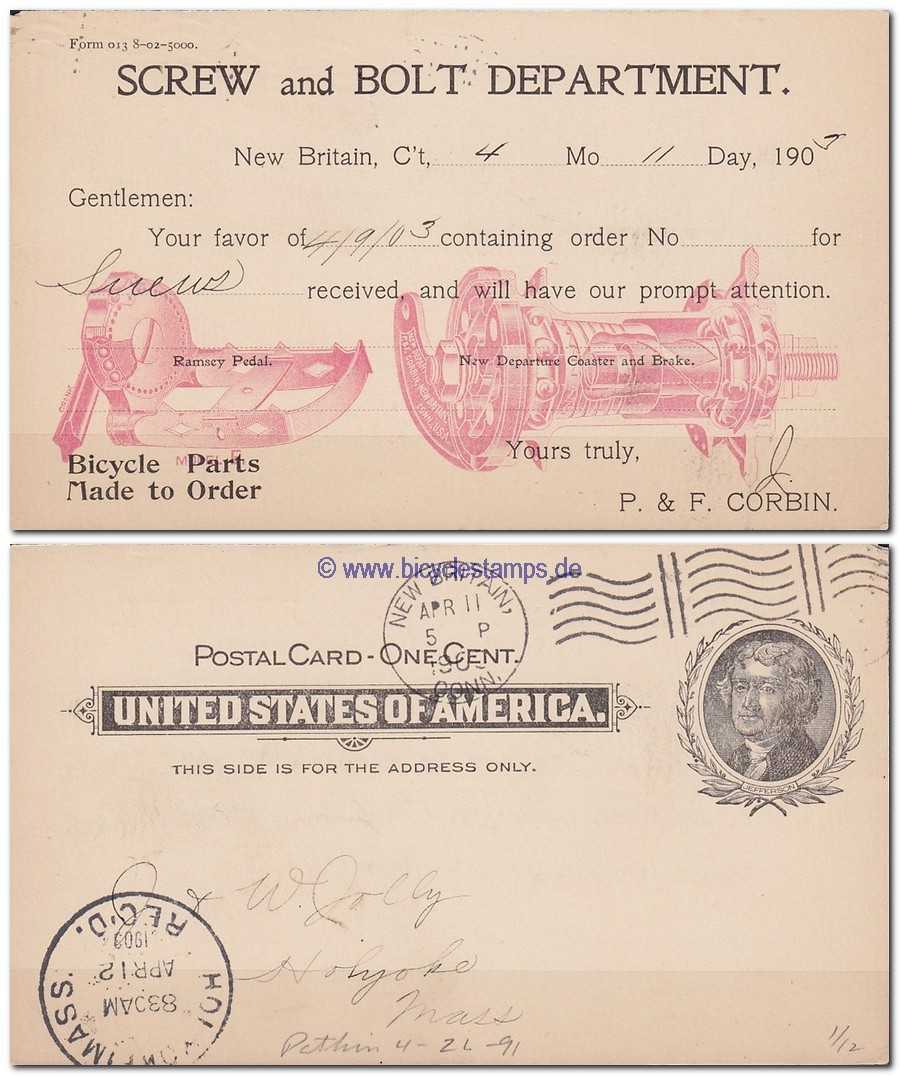 Form 013 8-02-5000.
SCREW and BOLT DEPARTMENT.
New Britain, C't, 4 Mo 11 Day, 1903
Gentlemen:
Your favor of 4/9/03 containing order No for
Screws received, and will have our prompt attention.
Ramsey Pedal. New Departure Coaster and Brake.
Yours truly,
Bicycle Parts
Made to Order
P. & F. CORBIN.
© www.bicyclestamps.de
NEW BRITAIN,
APR 11
5 P
1903
CONN.
POSTAL CARD - ONE CENT.
UNITED STATES OF AMERICA.
THIS SIDE IS FOR THE ADDRESS ONLY.
JEFFERSON
J & W. Jolly
Holyoke
Mass
4-26-91
1/12
HOLYOKE, MASS.
830AM
APR 12
1903
REC'D.